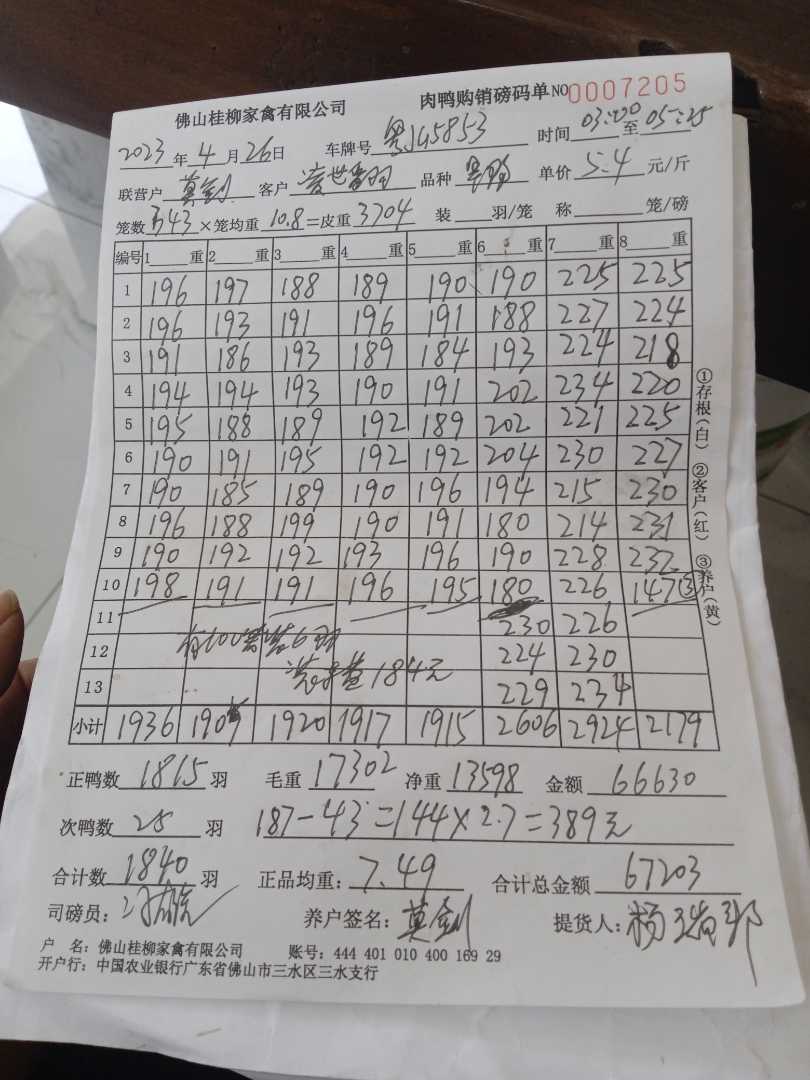 佛山桂柳家禽有限公司 肉鸭购销磅码单 NO 0007205
2023 年 4 月 26 日 车牌号 粤J45853 时间 03:00 至 05:25
联营户 莫剑 客户 品种 单价 5.4 元/斤
笼数 343 ×笼均重 10.8 =皮重 3704 装 羽/笼 称 笼/磅
编号 1 重 2 重 3 重 4 重 5 重 6 重 7 重 8 重
1 196 197 188 189 190 190 225 225
2 196 193 191 196 191 188 227 224
3 191 186 193 189 184 193 224 218
4 194 194 193 190 191 202 234 220
5 195 188 189 192 189 202 221 225
6 190 191 195 192 192 204 230 227
7 190 185 189 190 196 194 215 230
8 196 188 199 190 191 180 214 231
9 190 192 192 193 196 190 228 232
10 198 191 191 196 195 180 226 147③
11 230 226
12 有100 装6羽 224 230
13 184元 229 234
小计 1936 1905 1920 1917 1915 2606 2924 2179
正鸭数 1815 羽 毛重 17302 净重 13598 金额 66630
次鸭数 25 羽 187-43=144×2.7=389元
合计数 1840 羽 正品均重: 7.49 合计总金额 67203
司磅员: 养户签名: 莫剑 提货人: 杨
户 名: 佛山桂柳家禽有限公司 账号: 444 401 010 400 169 29
开户行: 中国农业银行广东省佛山市三水区三水支行
①存根(白) ②客户(红) ③养户(黄)